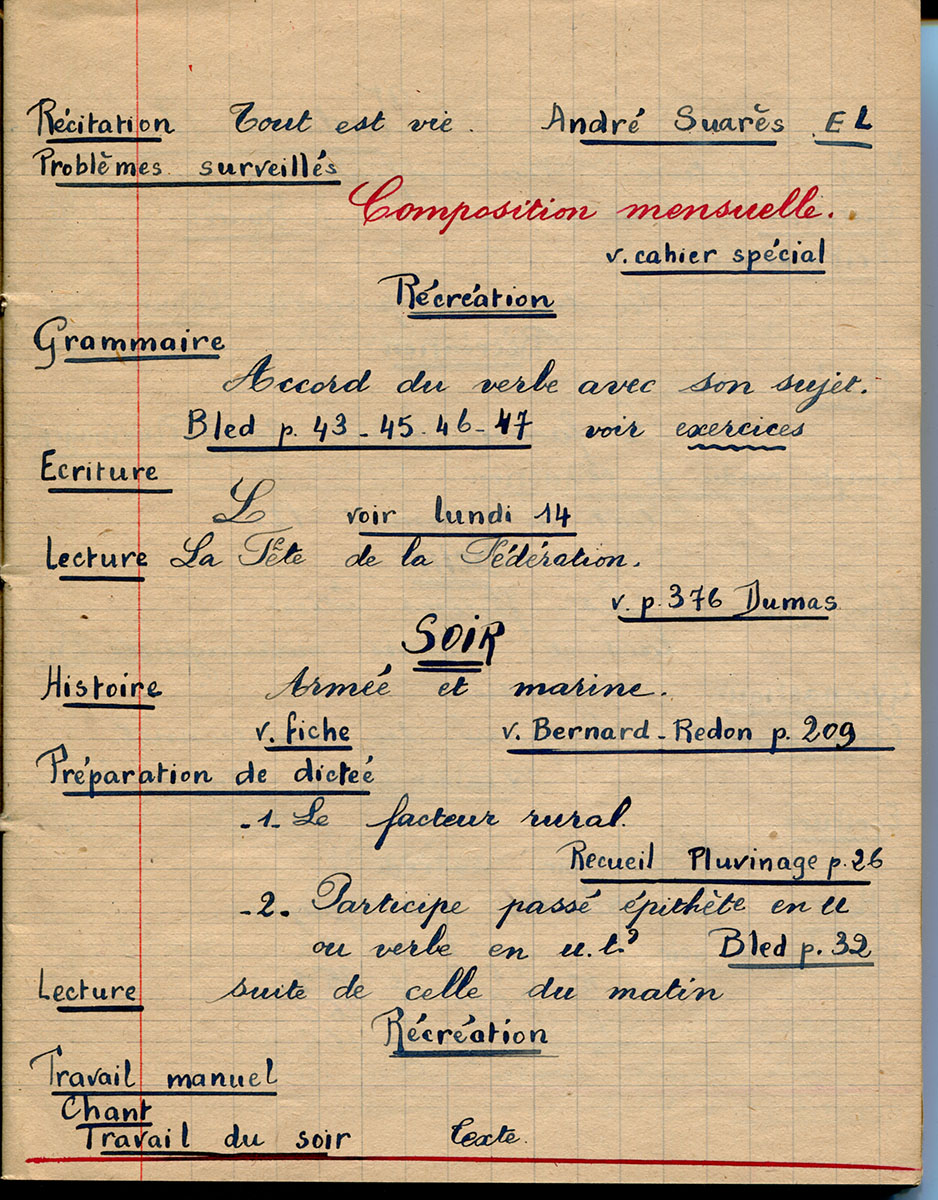 Récitation Tout est vie. André Suarès EL
Problèmes surveillés
Composition mensuelle.
v. cahier spécial
Récréation
Grammaire
Accord du verbe avec son sujet.
Bled p. 43 - 45 - 46 - 47 voir exercices
Ecriture
L voir lundi 14
Lecture La Fête de la Fédération.
v. p. 376 Dumas
SOIR
Histoire Armée et marine.
v. fiche v. Bernard - Redon p. 209
Préparation de dicteé
- 1 - Le facteur rural.
Recueil Pluvinage p. 26
- 2 - Participe passé épithète en u
ou verbe en u.t? Bled p. 32
Lecture suite de celle du matin
Récréation
Travail manuel
Chant
Travail du soir Texte.